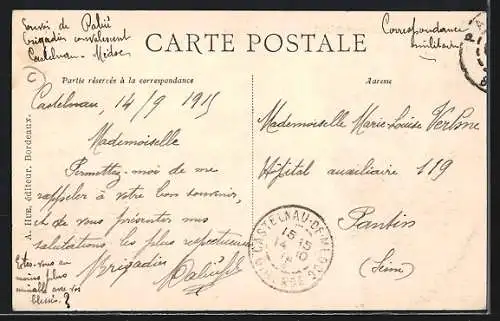 Envoi de Patié
Brigadier convalescent
Castelnau - Médoc
Correspondance
militaire
CARTE POSTALE
C
Partie réservée à la correspondance
Adresse
Castelnau, 14/9 1915
Mademoiselle
Permettez-moi de me
rappeler à votre bon souvenir,
et de vous présenter mes
salutations les plus respectueuses
Brigadier
Êtes-vous au
moins plus
avec vos
blessés ?
Mademoiselle Marie-Louise
Hôpital auxiliaire 119
Pantin
(Seine)
CASTELNAU-DE-MÉDOC
15-15
14-10
GIRONDE
A. Hue, éditeur, Bordeaux.